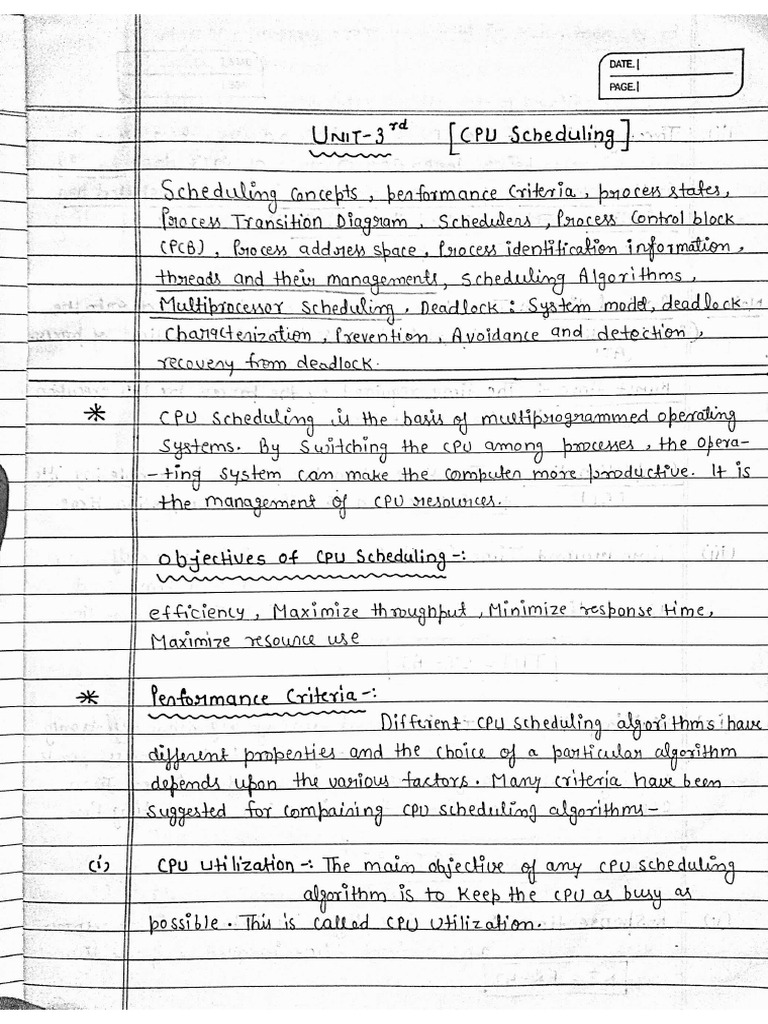 DATE.
PAGE.
UNIT-3rd [CPU Scheduling]
Scheduling Concepts, performance Criteria, process states,
Process Transition Diagram, Schedulers, Process Control block
(PCB), Process address space, Process identification information,
threads and their managements, Scheduling Algorithms,
Multiprocessor Scheduling. Deadlock: System model, deadlock
Characterization, Prevention, Avoidance and detection,
recovery from deadlock.
* CPU Scheduling is the basis of multiprogrammed operating
Systems. By Switching the CPU among processes, the opera-
-ting system can make the computer more productive. It is
the management of CPU resources.
Objectives of CPU Scheduling-:
efficiency, Maximize throughput, Minimize response time,
Maximize resource use
* Performance Criteria-:
Different CPU scheduling algorithms have
different properties and the choice of a particular algorithm
depends upon the various factors. Many criteria have been
suggested for compairing CPU scheduling algorithms-
(i) CPU utilization-: The main objective of any CPU scheduling
algorithm is to keep the CPU as busy as
possible. This is called CPU Utilization.